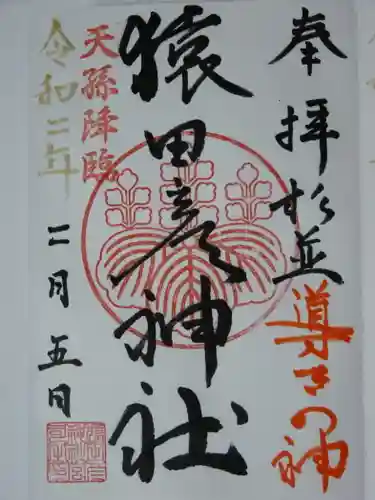 奉拝
杉並
導きの神
猿田彦神社
天孫降臨
令和二年
二月五日